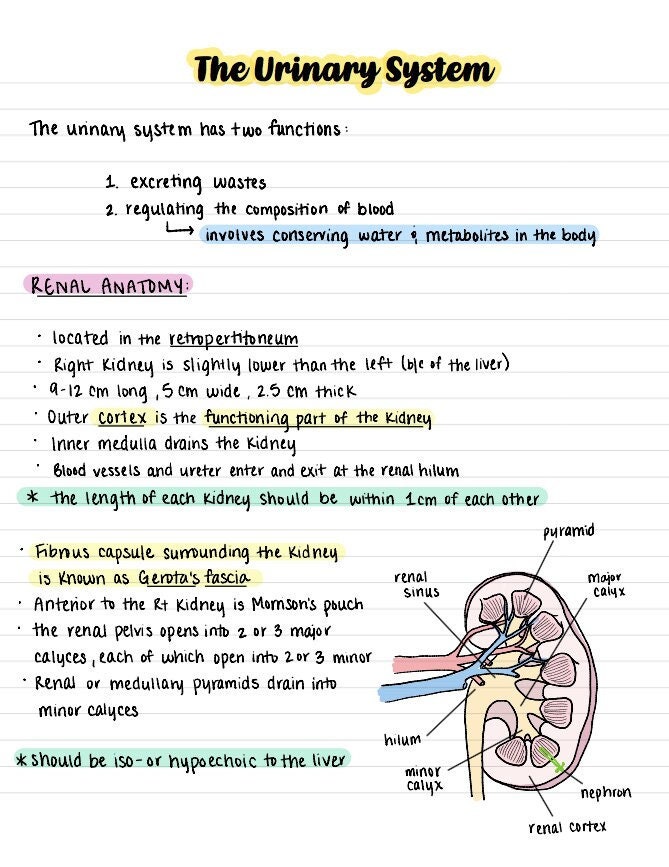 The Urinary System
The urinary system has two functions:
1. excreting wastes
2. regulating the composition of blood
involves conserving water & metabolites in the body
RENAL ANATOMY:
· located in the retropertitoneum
· Right Kidney is slightly lower than the left (b/c of the liver)
· 9-12 cm long, 5 cm wide, 2.5 cm thick
· Outer cortex is the functioning part of the Kidney
· Inner medulla drains the Kidney
· Blood vessels and ureter enter and exit at the renal hilum
* the length of each Kidney should be within 1cm of each other
· Fibrous capsule surrounding the Kidney
is Known as Gerota's fascia
· Anterior to the Rt Kidney is Morrison's pouch
· the renal pelvis opens into 2 or 3 major
calyces, each of which open into 2 or 3 minor
· Renal or medullary pyramids drain into
minor calyces
* should be iso- or hypoechoic to the liver
pyramid
renal
sinus
major
calyx
hilum
minor
calyx
nephron
renal cortex